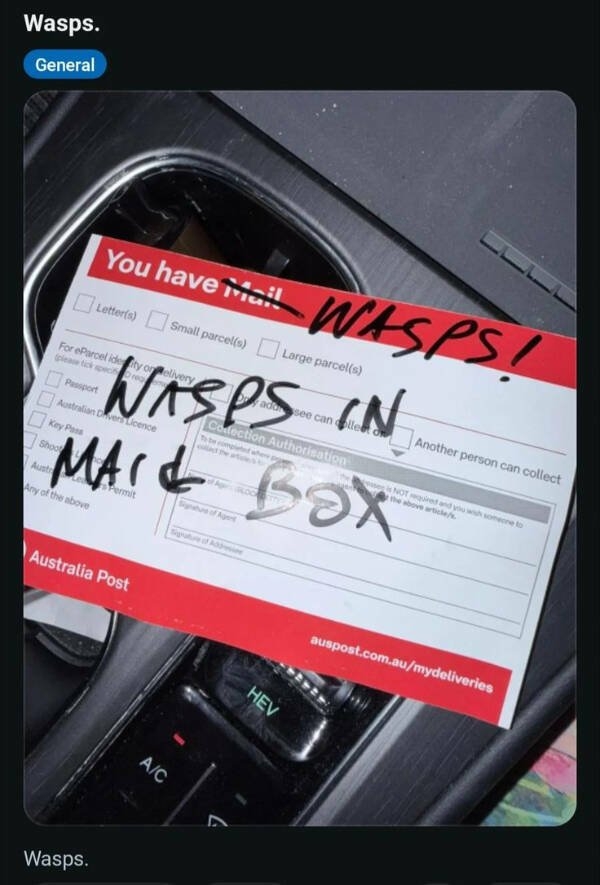 Wasps.
General
You have Mail WASPS!
Letter(s) Small parcel(s) Large parcel(s)
For eParcel identity on delivery
(please tick specific ID
Only addressee can collect or Another person can collect
WASPS IN
MAIL BOX
Passport
Australian Drivers Licence
Key Pass
Permit
Any of the above
Collection Authorisation
To be completed where
is NOT required and you wish someone to
collect the
the above article/s.
Signature of Agent
Signature of Addressee
Australia Post
auspost.com.au/mydeliveries
HEV
A/C
Wasps.